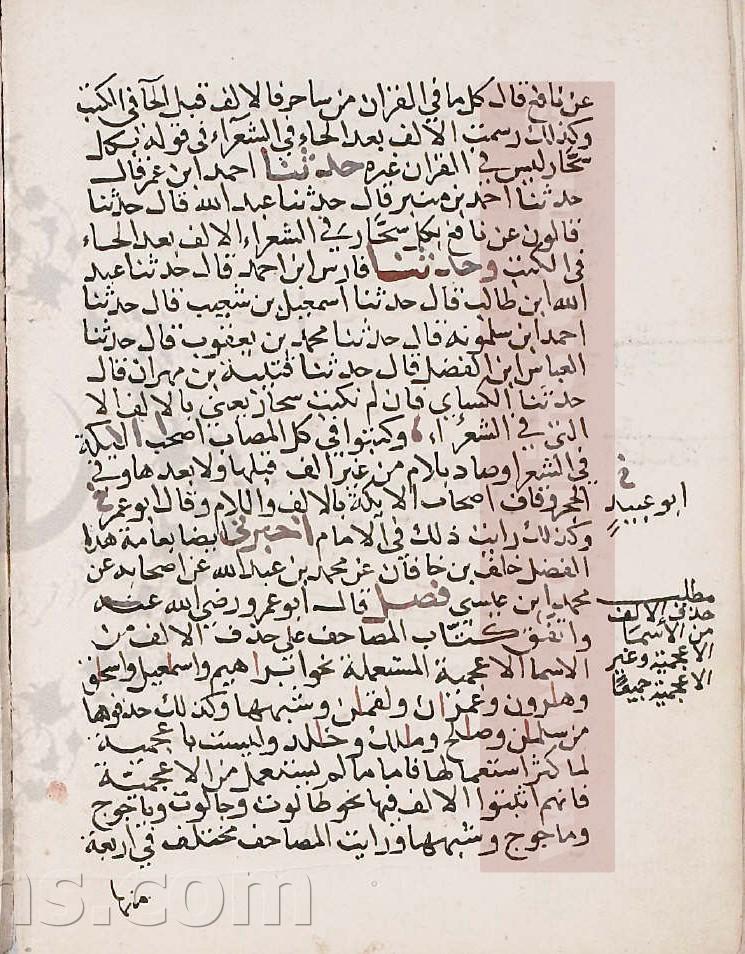 عن نافع قال كل ما في القران من ساحر فالالف قبل الحآ في الكتب
وكذلك رسمت الالف بعد الحاء في الشعرآء في قوله بكل
سحّار ليس في القران غيره حدثنا احمد ابن عمر قال
حدثنا احمد بن منير قال حدثنا عبد الله قال حدثنا
قالون عن نافع بكل سحّار في الشعراء الالف بعد الحاء
في الكتب وحدثنا فارس ابن احمد قال حدثنا عبد
الله ابن طالب قال حدثنا اسمعيل بن شعيب قال حدثنا
احمد ابن سلمويه قال حدثنا محمد بن يعقوب قال حدثنا
العباس ابن الفضل قال حدثنا قتيبة بن مهران قال
حدثنا الكساي قال لم نكتب سحار يعني بالالف الا
التي في الشعراء وكتبوا في كل المصاحف اصحب لايكة
في الشعرا وصاد بلام من غير الف قبلها ولا بعدها وفي
الحجر وقاف اصحاب الايكة بالالف واللام وقال ابو عمر
ابو عبيد
وكذلك رايت ذلك في الامام اخبرني ايضا بعامة هذا
الفضل خلف بن خاقان عن محمد بن عبد الله عن اصحابه عن
محمد ابن عيسى فصل قال ابو عمرو رضي الله عنه
واتفق كتّاب المصاحف على حذف الالف من
الاسما الاعجمية المستعملة نحو ابراهيم واسمعيل واسحق
وهرون وعمران ولقمن وشبهها وكذلك حذفوها
من سليمن وصلح وملك وخلد وليست باعجمية
لما كثر استعمالها فاما ما لم يستعمل من الاعجمية
فانهم اثبتوا الالف فيها نحو طالوت وجالوت وياجوج
وماجوج وشبهها ورايت المصاحف مختلف في اربعة
منها
مطلب
حذف الالف
من الاسما
الاعجمية وغير
الاعجمية جميعًا
ns.com